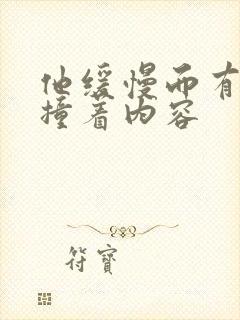 他缓慢而有
撞着内容
符寶